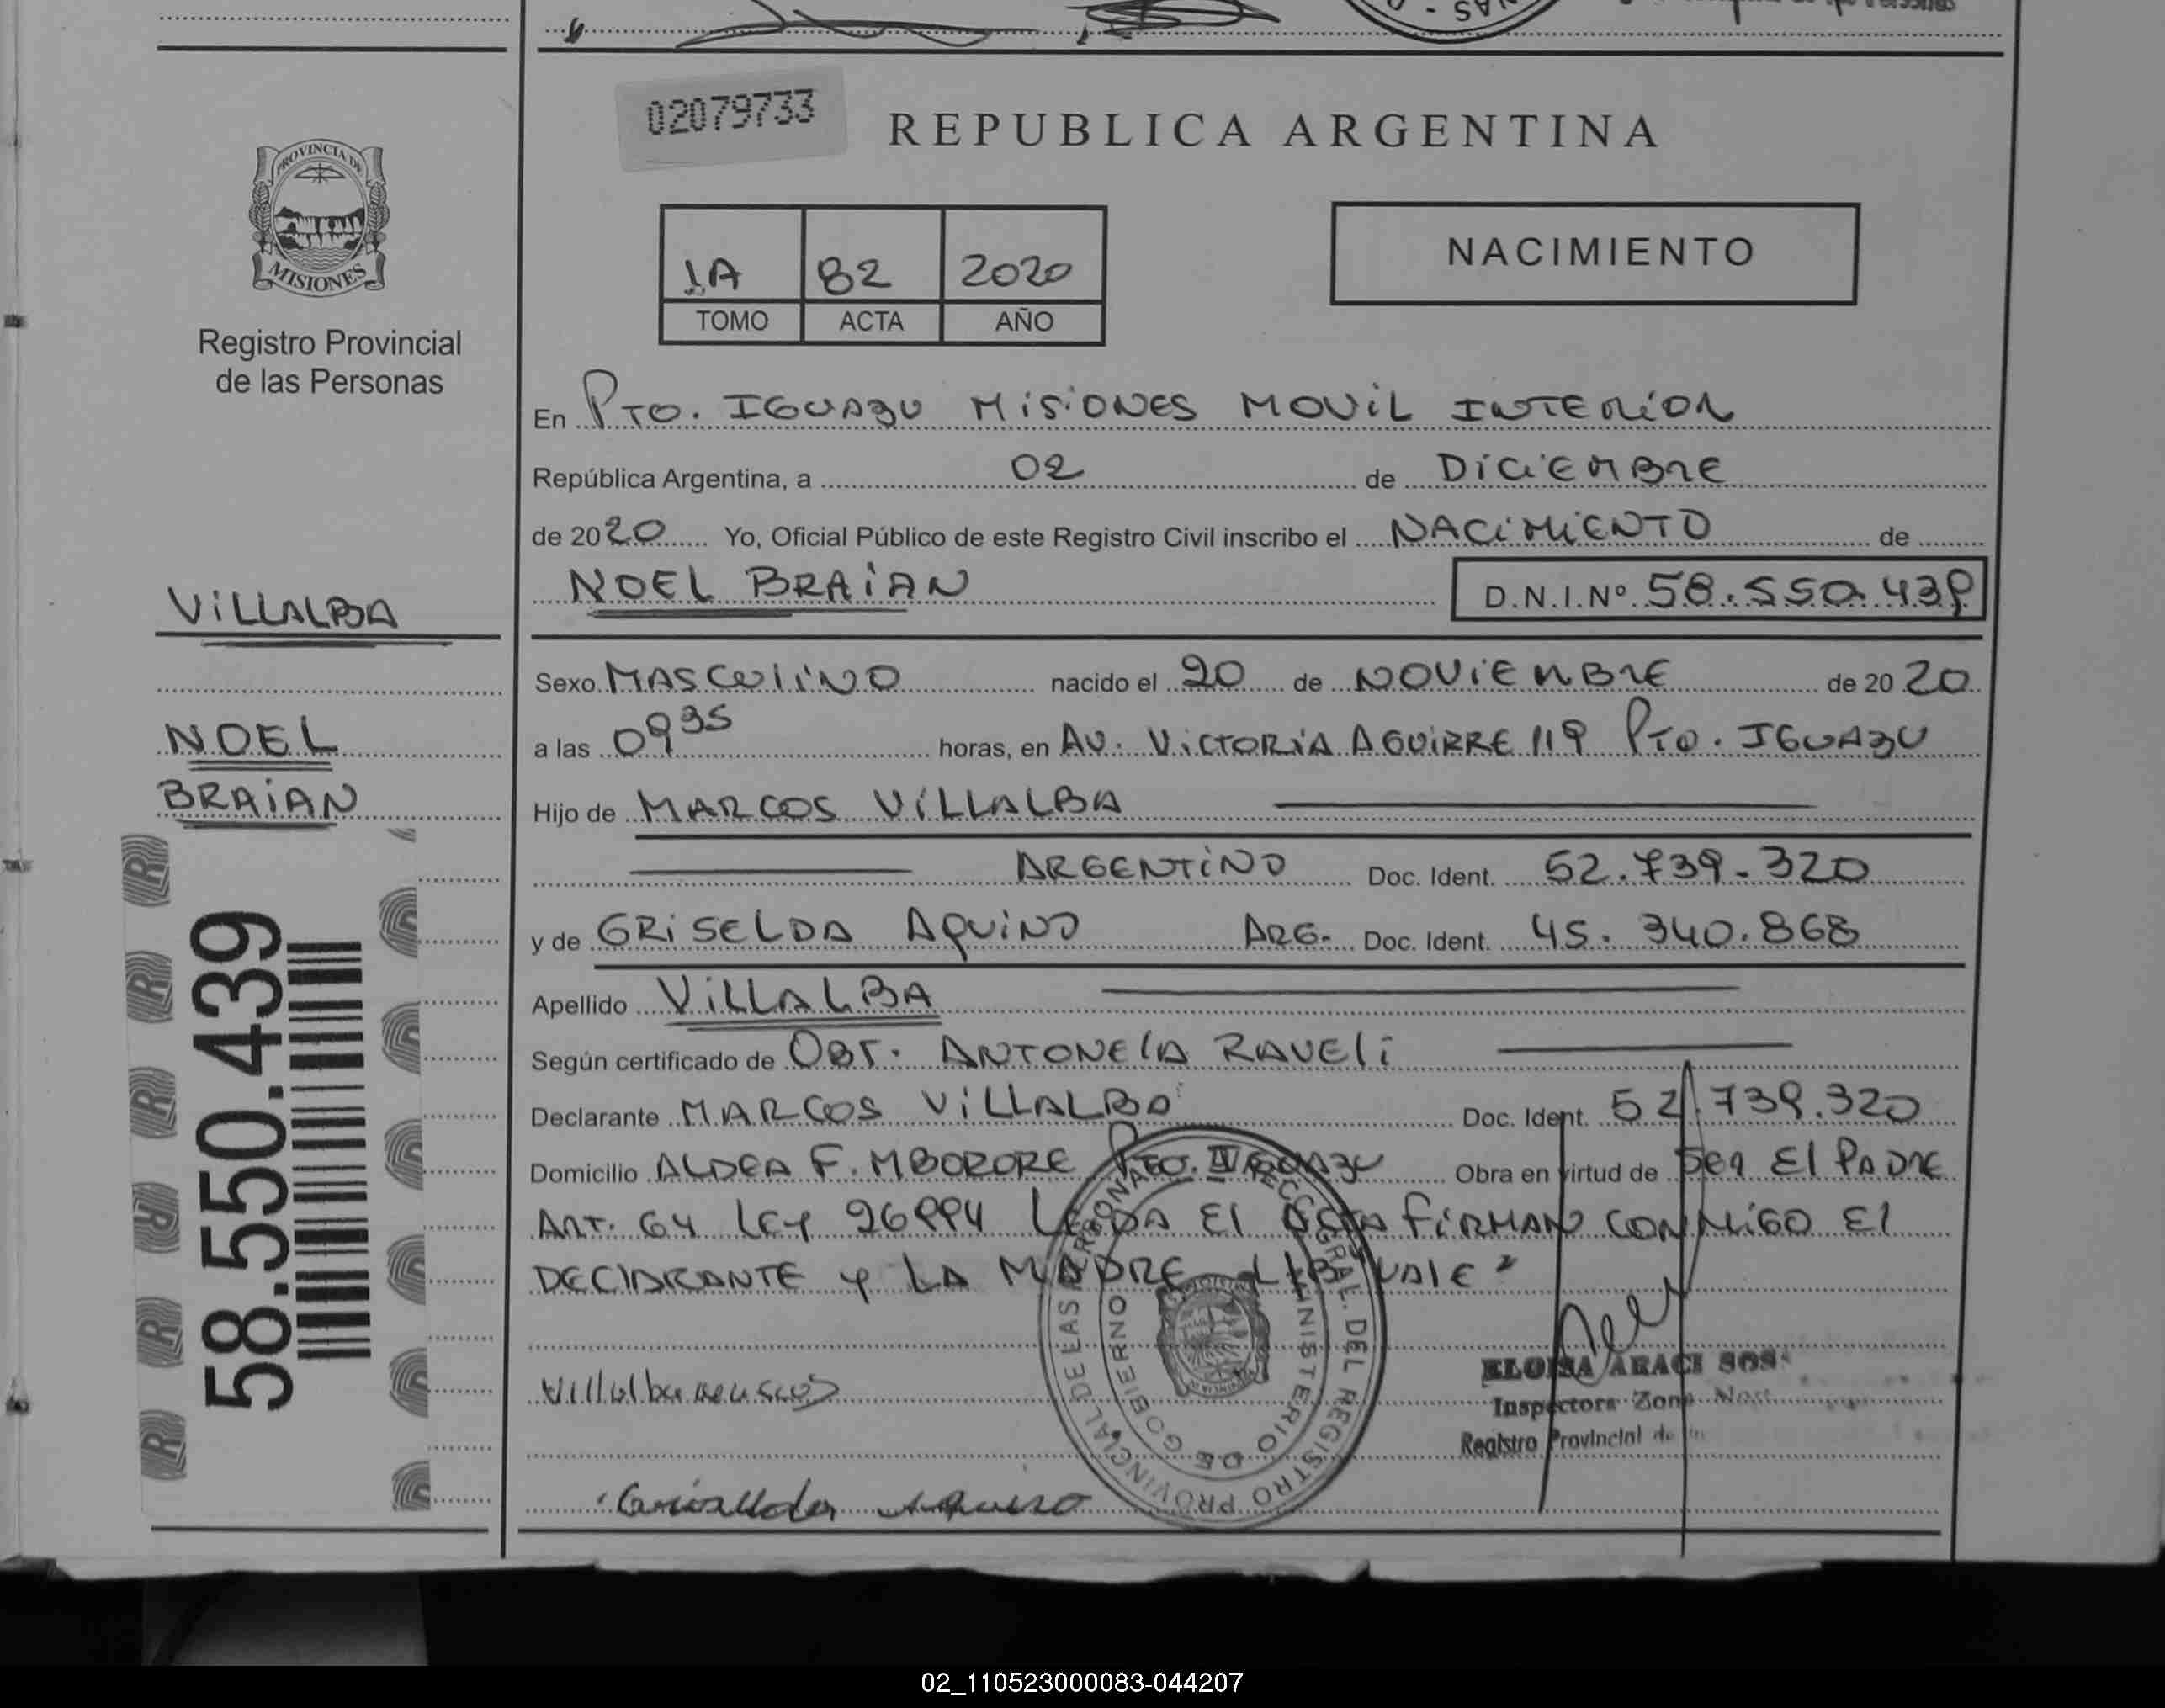 02079733
REPUBLICA ARGENTINA
PROVINCIA DE
MISIONES
Registro Provincial
de las Personas
1A 82 2020
TOMO ACTA AÑO
NACIMIENTO
En PTO. IGUAZU MISIONES MOVIL INTERIOR
República Argentina, a 02 de DICIEMBRE
de 2020 Yo, Oficial Público de este Registro Civil inscribo el NACIMIENTO de
NOEL BRAIAN D.N.I.Nº 58.550.439
VILLALBA
NOEL
BRAIAN
58.550.439
Sexo MASCULINO nacido el 20 de NOVIEMBRE de 2020
a las 09 35 horas, en AV. VICTORIA AGUIRRE 119 PTO. IGUAZU
Hijo de MARCOS VILLALBA
ARGENTINO Doc. Ident. 52.739.320
y de GRISELDA AQUINO ARG. Doc. Ident. 45.340.868
Apellido VILLALBA
Según certificado de OBT. ANTONELA RAVELI
Declarante MARCOS VILLALBA Doc. Ident. 52.739.320
Domicilio ALDEA F. MBORORE PTO. IGUAZU Obra en virtud de SER El PADRE
ART. 64 LEY 26994 LEIDA El ACTA FIRMAN CONMIGO El
DECLARANTE y LA MADRE VALE
Villalba marcos
Griselda Aquino
DIRECC. GRAL. DEL REGISTRO PROVINCIAL DE LAS PERSONAS
MINISTERIO DE GOBIERNO
ELOISA ARACI SOS
Inspectora Zona
Registro Provincial de
02_110523000083-044207